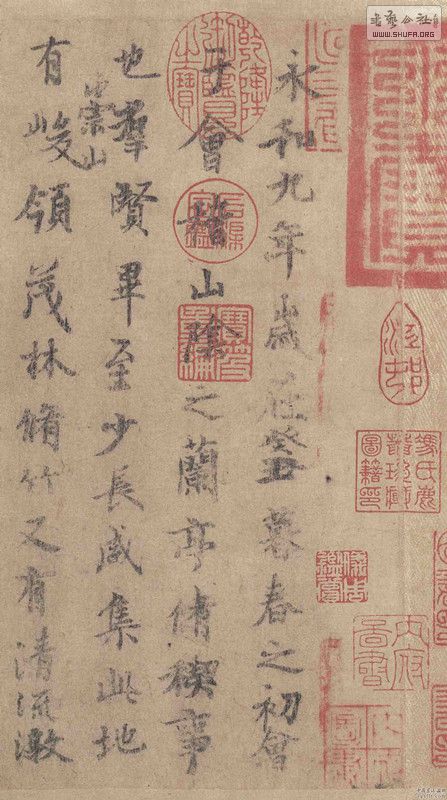 書藝公社
WWW.SHUFA.ORG
永和九年歲在癸丑暮春之初會
于會稽山陰之蘭亭脩稧事
也羣賢畢至少長咸集此地
有崇山峻領茂林脩竹又有清流激
馮氏鹿菴珍藏圖籍印